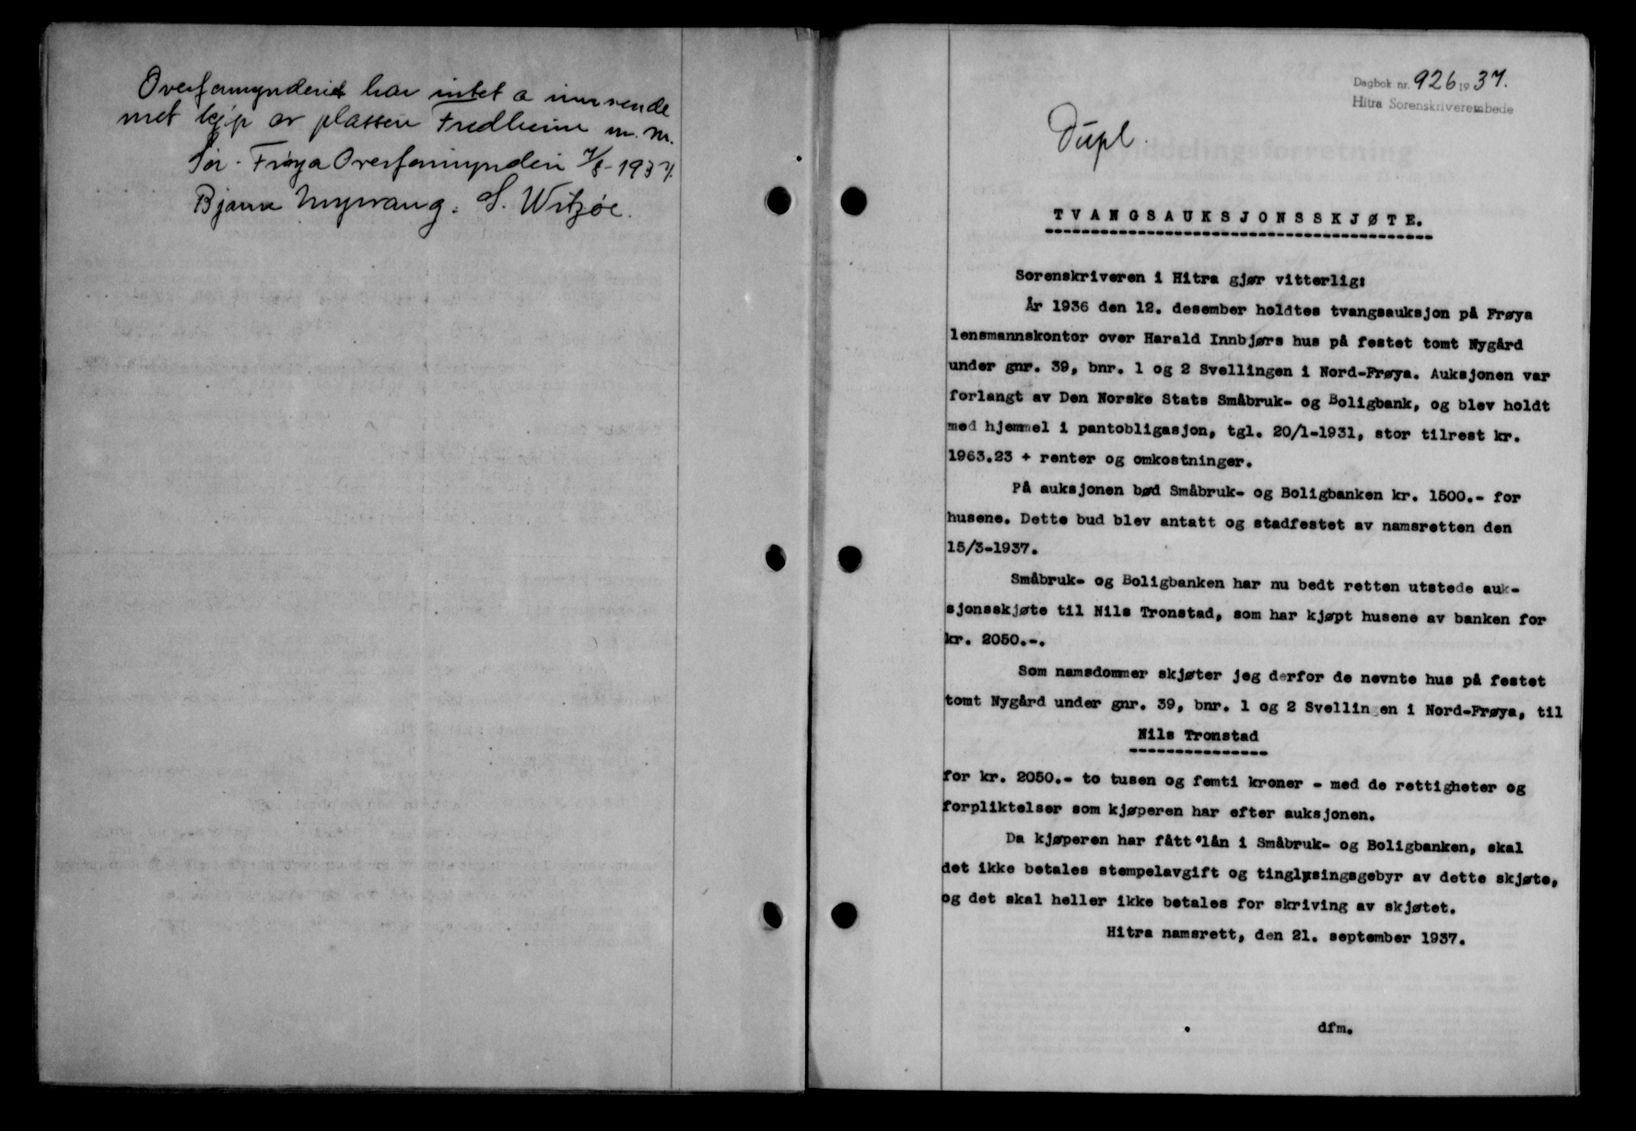 Overformynderiet har intet a innvende
met kjøp av plassen Fredheim m.m.
Sør-Frøya Overformynderi 7/8-1937.
Bjarne S. Witzøe.
Dagbok nr. 926 1937.
Hitra Sorenskriverembede
Dupl.
TVANGSAUKSJONSSKJØTE.
Sorenskriveren i Hitra gjør vitterlig:
År 1936 den 12. desember holdtes tvangsauksjon på Frøya
lensmannskontor over Harald Innbjørs hus på festet tomt Nygård
under gnr. 39, bnr. 1 og 2 Svellingen i Nord-Frøya. Auksjonen var
forlangt av Den Norske Stats Småbruk- og Boligbank, og blev holdt
med hjemmel i pantobligasjon, tgl. 20/1-1931, stor tilrest kr.
1963.23 + renter og omkostninger.
På auksjonen bød Småbruk- og Boligbanken kr. 1500.- for
husene. Dette bud blev antatt og stadfestet av namsretten den
15/3-1937.
Småbruk- og Boligbanken har nu bedt retten utstede auk-
sjonsskjøte til Nils Tronstad, som har kjøpt husene av banken for
kr. 2050.-.
Som namsdommer skjøter jeg derfor de nevnte hus på festet
tomt Nygård under gnr. 39, bnr. 1 og 2 Svellin en i Nord-Frøya, til
Nils Tronstad
for kr. 2050.- to tusen og femti kroner - med de rettigheter og
forpliktelser som kjøperen har efter auksjonen.
Da kjøperen har fått lån i Småbruk- og Boligbanken, skal
det ikke betales stempelavgift og tinglysingsgebyr av dette skjøte,
og det skal heller ikke betales for skriving av skjøtet.
Hitra namsrett, den 21. september 1937.
dfm.